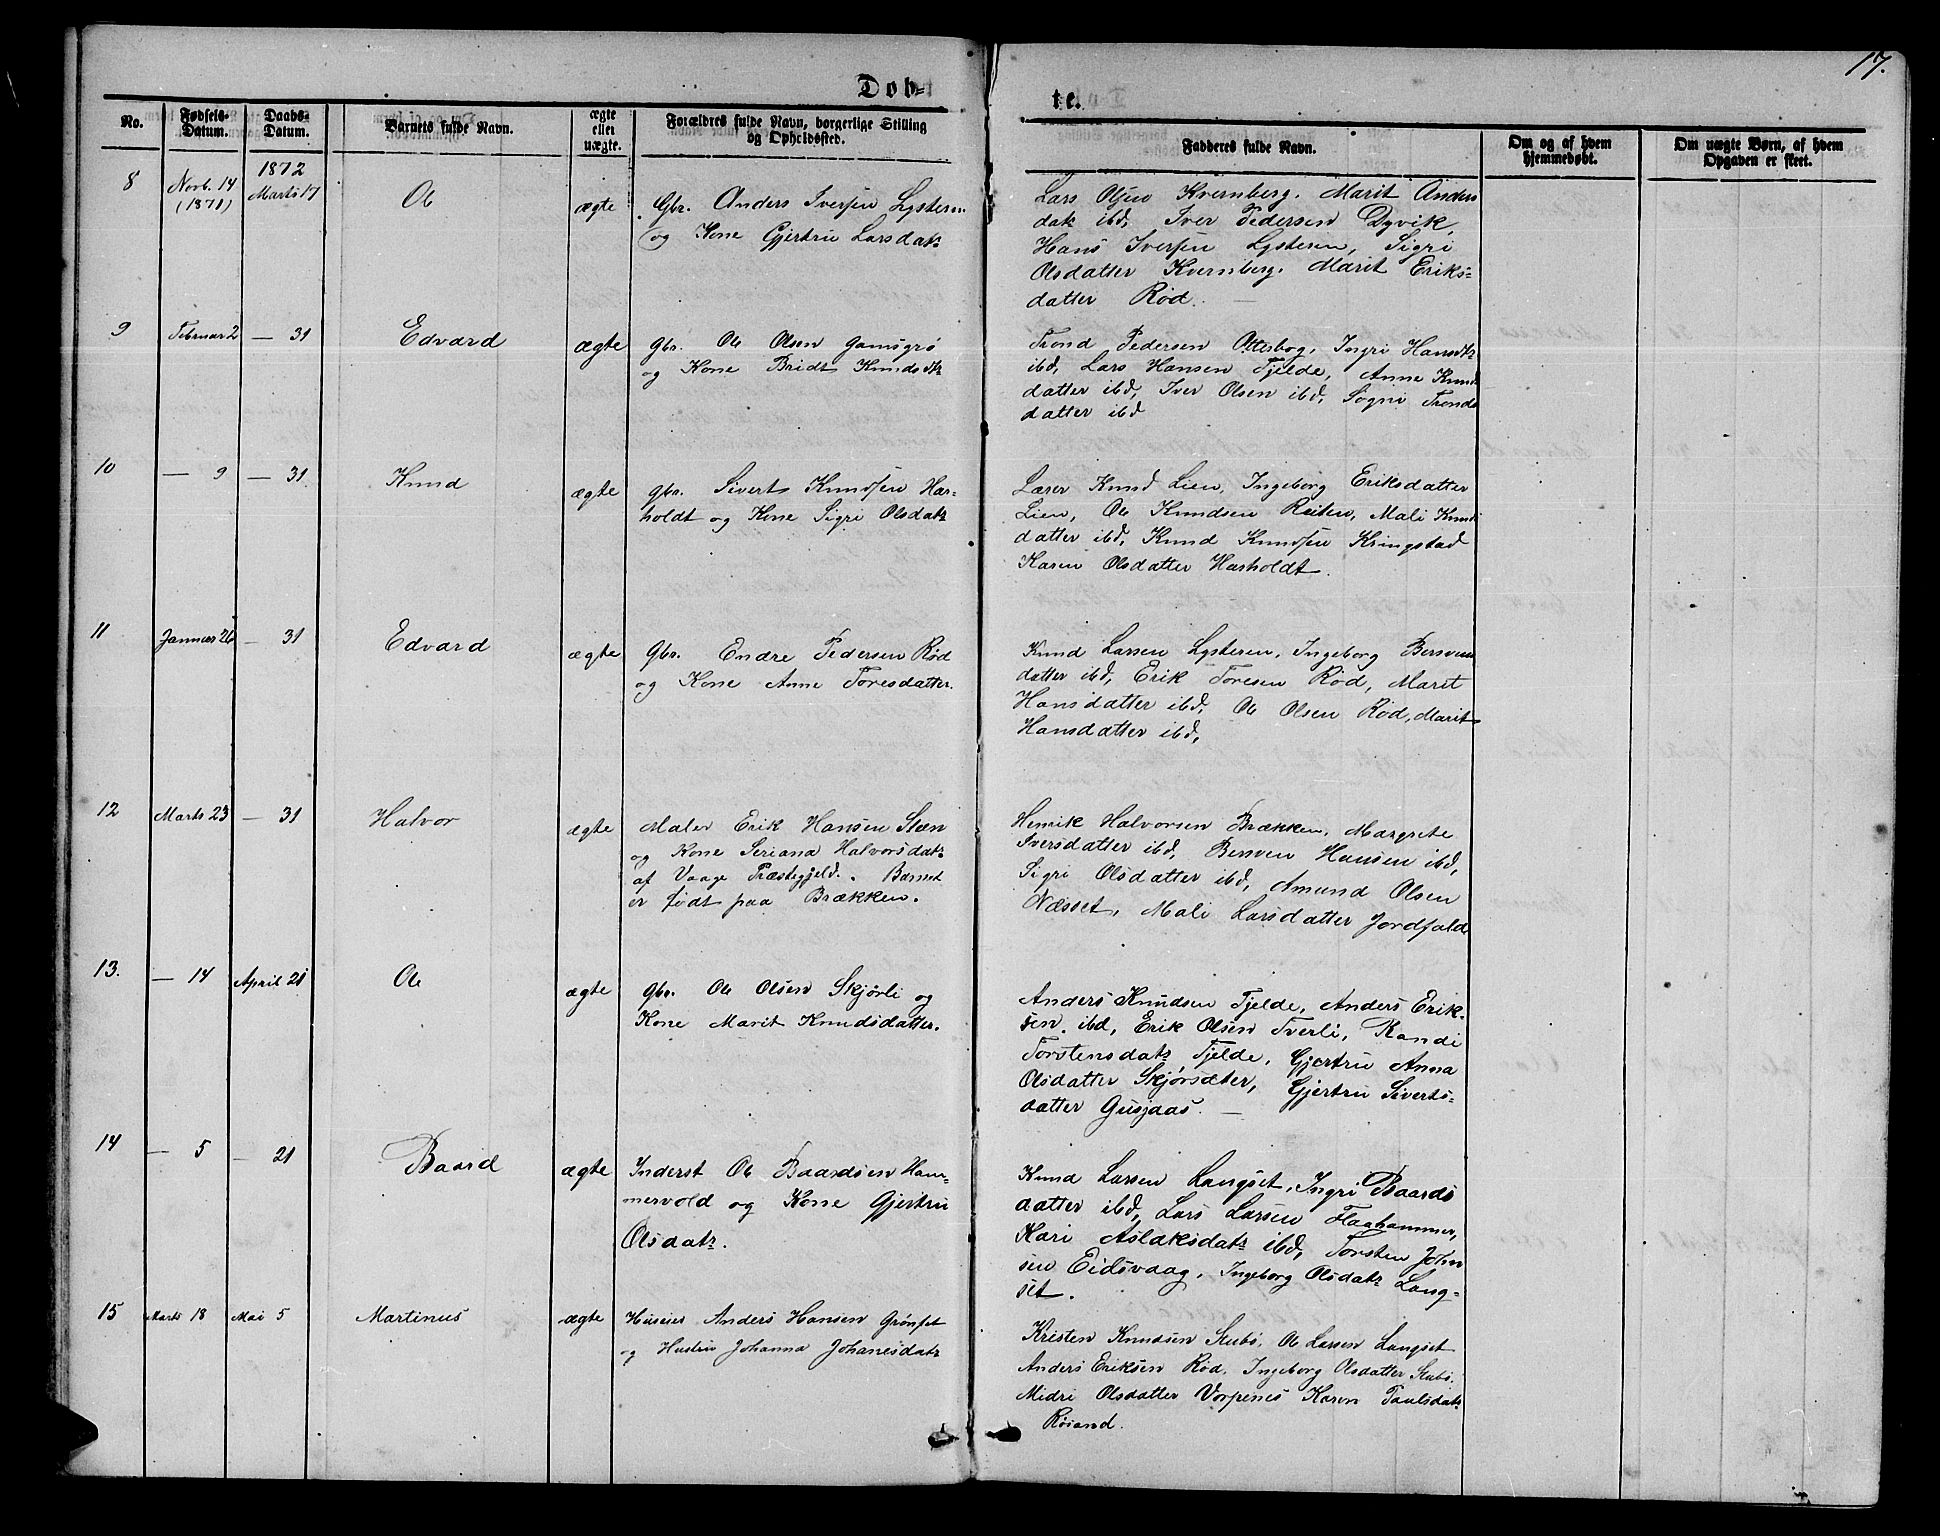 17.
Døb=
te.
No.
Fødsels-
Datum.
Daabs-
Datum.
Barnets fulde Navn.
ægte
eller
uægte.
Forældres fulde Navn, borgerlige Stilling
og Opholdssted.
Fadderes fulde Navn.
Om og af hvem
hjemmedøbt.
Om uægte Børn, af hvem
Opgaven er skeet.
1872
8
Novb. 14
(1871)
Marts 17
Ole
ægte
Gbr. Anders Iversen Lysteren
og Kone Gjertru Larsdatr
Lars Olsen Kvernberg. Marit Anders
datr ibd, Iver Pedersen Dyvik,
Hans Iversen Lysteren, Sigri
Olsdatter Kvernberg. Marit Eriks=
datter Rød.
9
Februar 2
— 31
Edvard
ægte
Gbr. Ole Olsen Gamsgrø
og Kone Bridt Knudsdtr
Trond Pedersen Otterbog, Ingri Hansdtr
ibd, Lars Hansen Fjelde, Anne Knuds
datter ibd, Iver Olsen ibd, Sogni Tronds
datter ibd
10
— 9
— 31
Knud
ægte
gbr. Sivert Knudsen Har=
holdt og Kone Sigri Olsdatr
Lærer Knud Lien, Ingeborg Eriksdatter
Lien, Ole Knudsen Reiten, Mali Knuds
datter ibd, Knud Knudsen Kringstad
Karen Olsdatter Harholdt.
11
Januar 26
— 31
Edvard
ægte
Gbr. Endre Pedersen Rød
og Kone Anne Toresdatter.
Knud Larsen Lysteren, Ingeborg Bersven
datter ibd, Erik Toresen Rød, Marit
Hansdatter ibd, Ole Olsen Rød, Marit
Hansdatter ibd,
12
Marts 23
— 31
Halvor
ægte
Maler Erik Hansen Steen
og Kone Seriana Halvorsdatr
af Vaage Præstegjeld. Barnet
er født paa Brækken.
Henrik Halvorsen Brækken, Margrete
Iversdatter ibd, Bersven Hansen ibd,
Sigri Olsdatter ibd, Amund Olsen
Næsset, Mali Larsdatter Jordfald
13.
— 14
April 21
Ole
ægte
Gbr. Ole Olsen Skjørli og
Kone Marit Knudsdatter.
Anders Knudsen Fjelde, Anders Erik-
sen ibd, Erik Olsen Tverli, Randi
Torstensdatr Fjelde, Gjertru Anna
Olsdatter Skjørsæter, Gjertru Siverts=
datter Gusjaas.
14
— 5
— 21
Baard
ægte
Inderst Ole Baardsen Ham=
mervold og Kone Gjertru
Olsdatr.
Knud Larsen Langset, Ingri Baards
datter ibd, Lars Larsen Flaahammer,
Kari Aslaksdatr ibd, Torsten John
sen Eidsvaag, Ingeborg Olsdatr Lang=
set.
15
Marts 18
Mai 5
Martinus
ægte
Huseier Anders Hansen Grønset
og Hustru Johanna Johanesdatr
Kristen Knudsen Stubø, Ole Larsen Langset
Anders Eriksen Rød. Ingeborg Olsdatter Stubø.
Midri Olsdatter Vorpenes Karen Paulsdatr
Røsand.